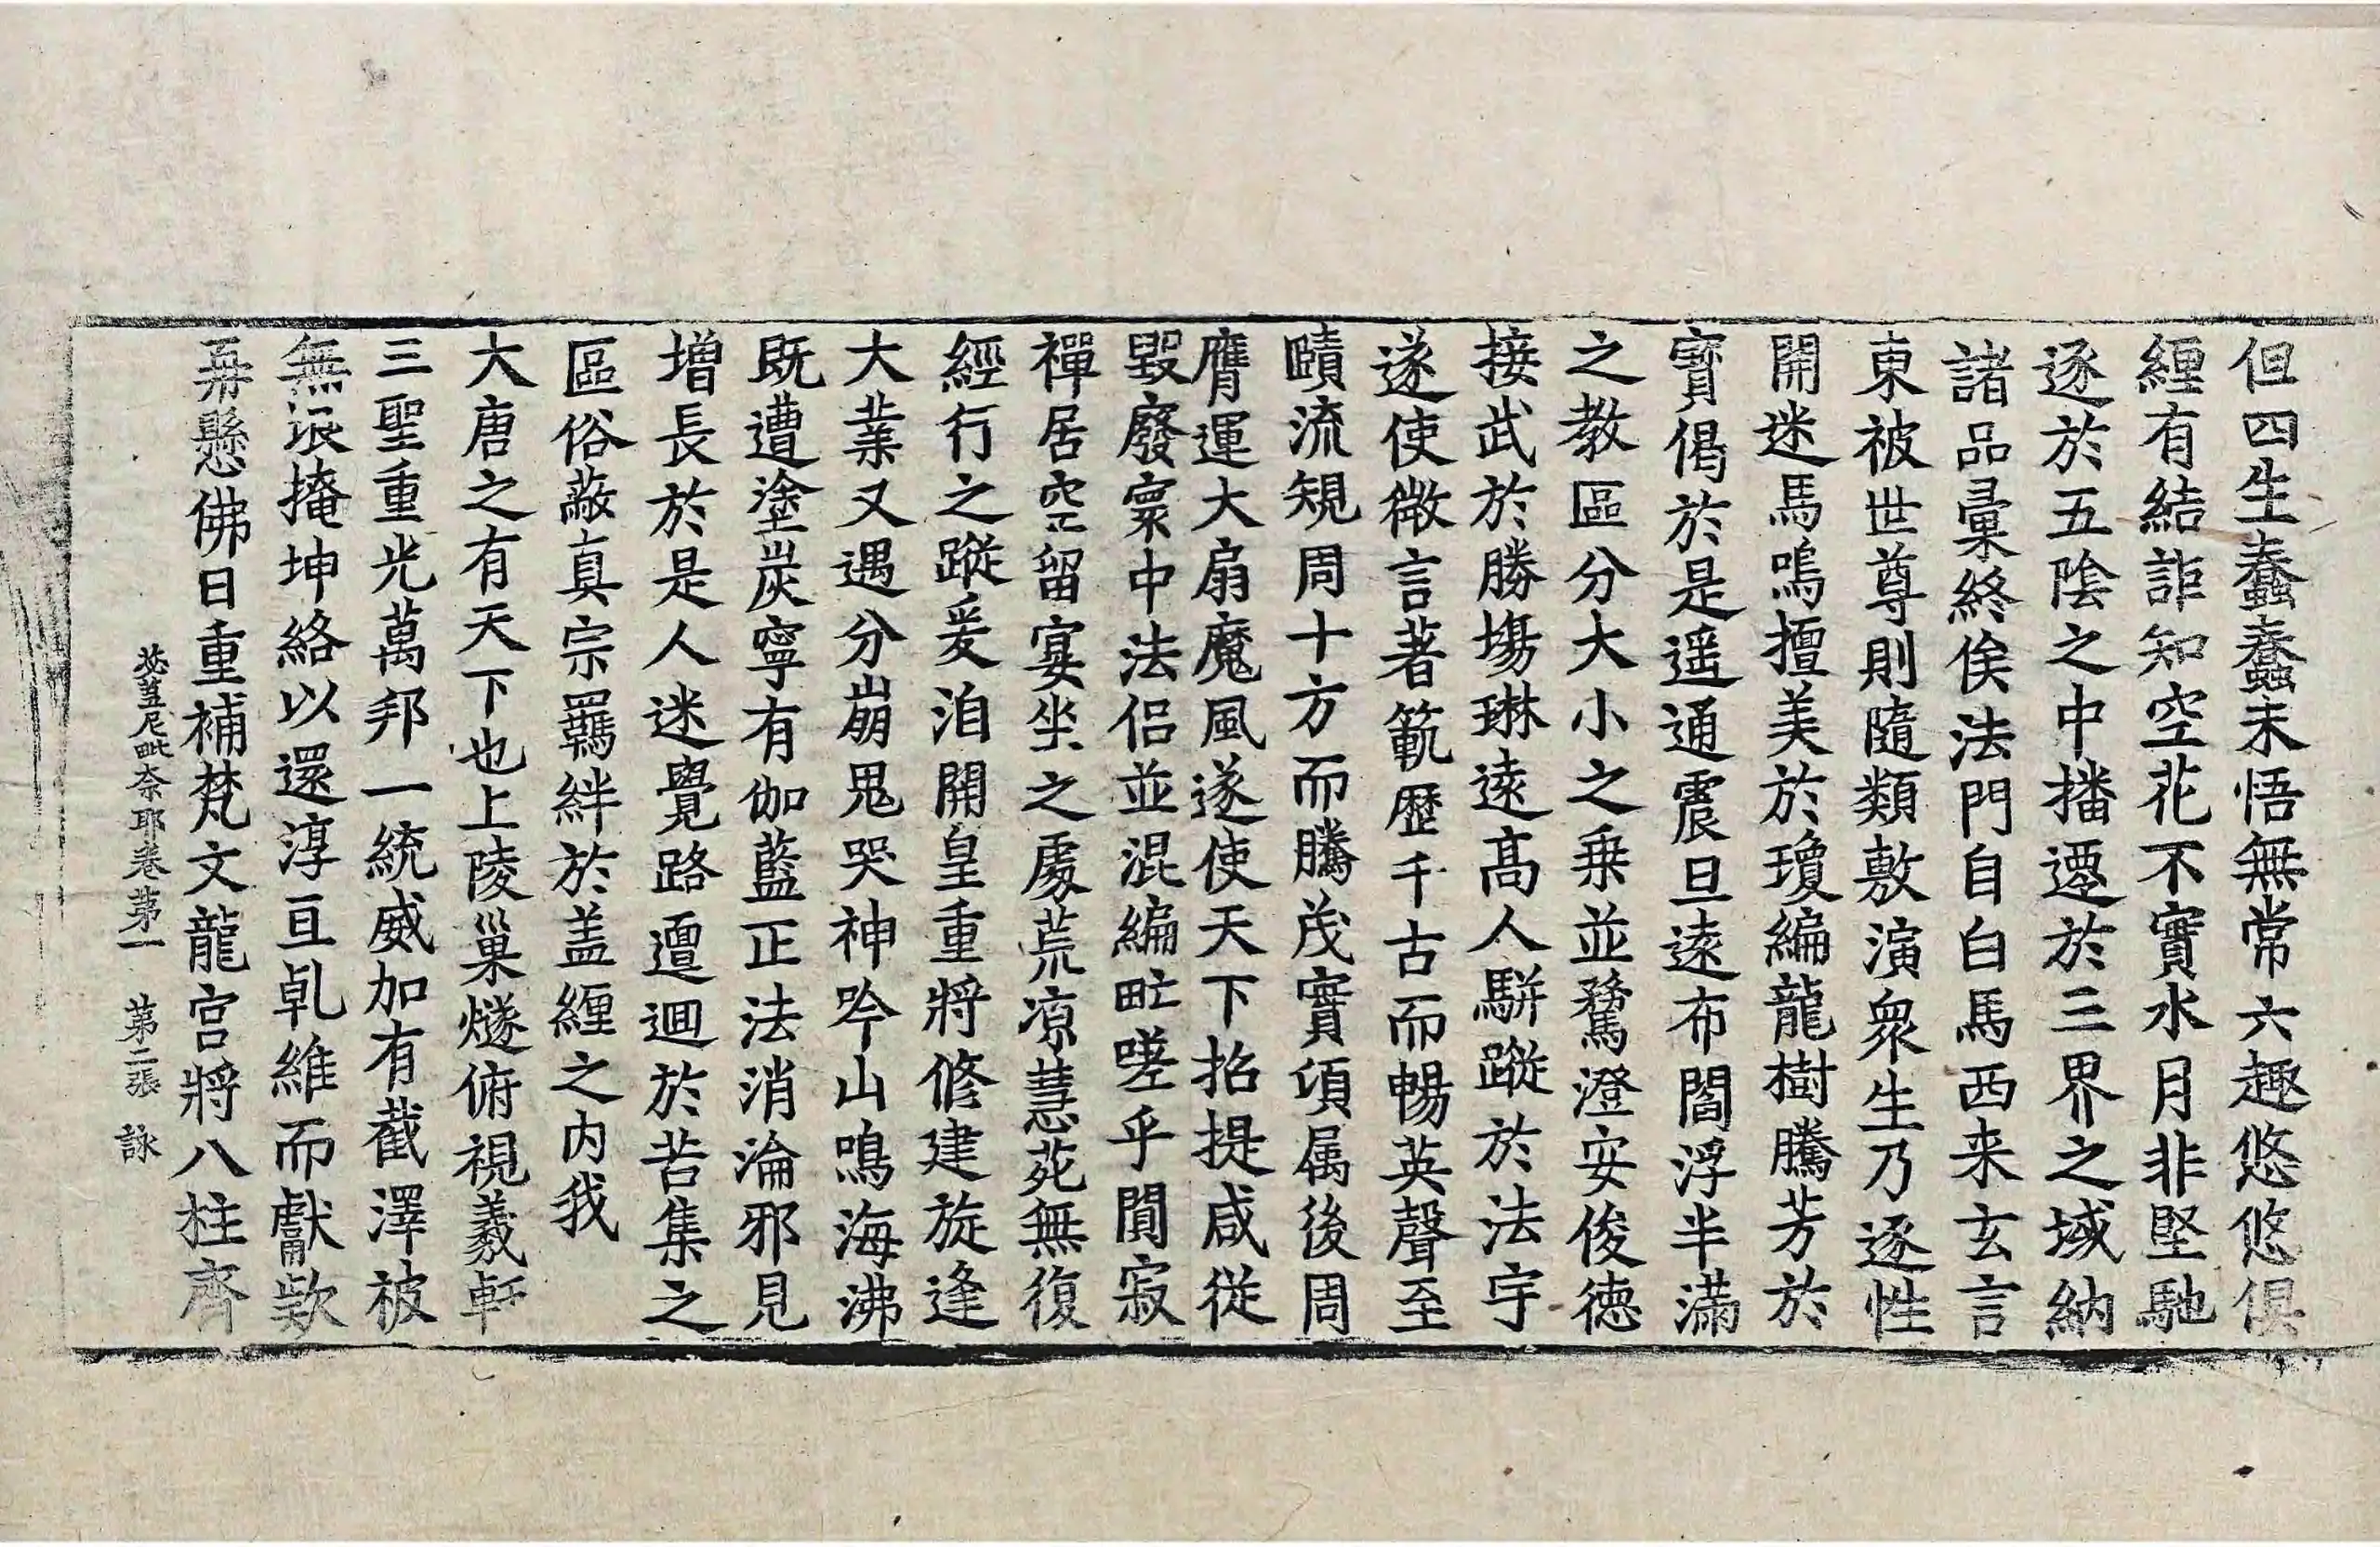 但四生蠢蠢未悟無常六趣悠悠俱
纒有結詎知空花不實水月非堅馳
逐於五陰之中播遷於三界之域納
諸品彙終俟法門自白馬西来玄言
東被世尊則隨類敷演衆生乃逐性
開迷馬鳴擅美於瓊編龍樹騰芳於
寶偈於是遥通震旦遠布閻浮半滿
之教區分大小之乗並騖澄安俊徳
接武於勝場琳遠高人騈蹤於法宇
遂使微言著範歷千古而暢英聲至
賾流規周十方而騰茂實湏属後周
膺運大扇魔風遂使天下招提咸従
毀廢寰中法侶並混編甿嗟乎闃寂
禪居空留宴坐之處荒凉慧苑無復
經行之蹤爰洎開皇重將修建旋逢
大業又遇分崩鬼哭神吟山鳴海沸
既遭塗炭寧有伽藍正法消淪邪見
增長於是人迷覺路邅迴於苦集之
區俗蔽真宗羈絆於盖纒之内我
大唐之有天下也上陵巢燧俯視羲軒
三聖重光萬邦一統威加有截澤被
無垠掩坤絡以還淳亘乹維而獻欵
再懸佛日重補梵文龍宫將八柱齊
苾蒭尼毗奈耶卷第一　第二張　詠